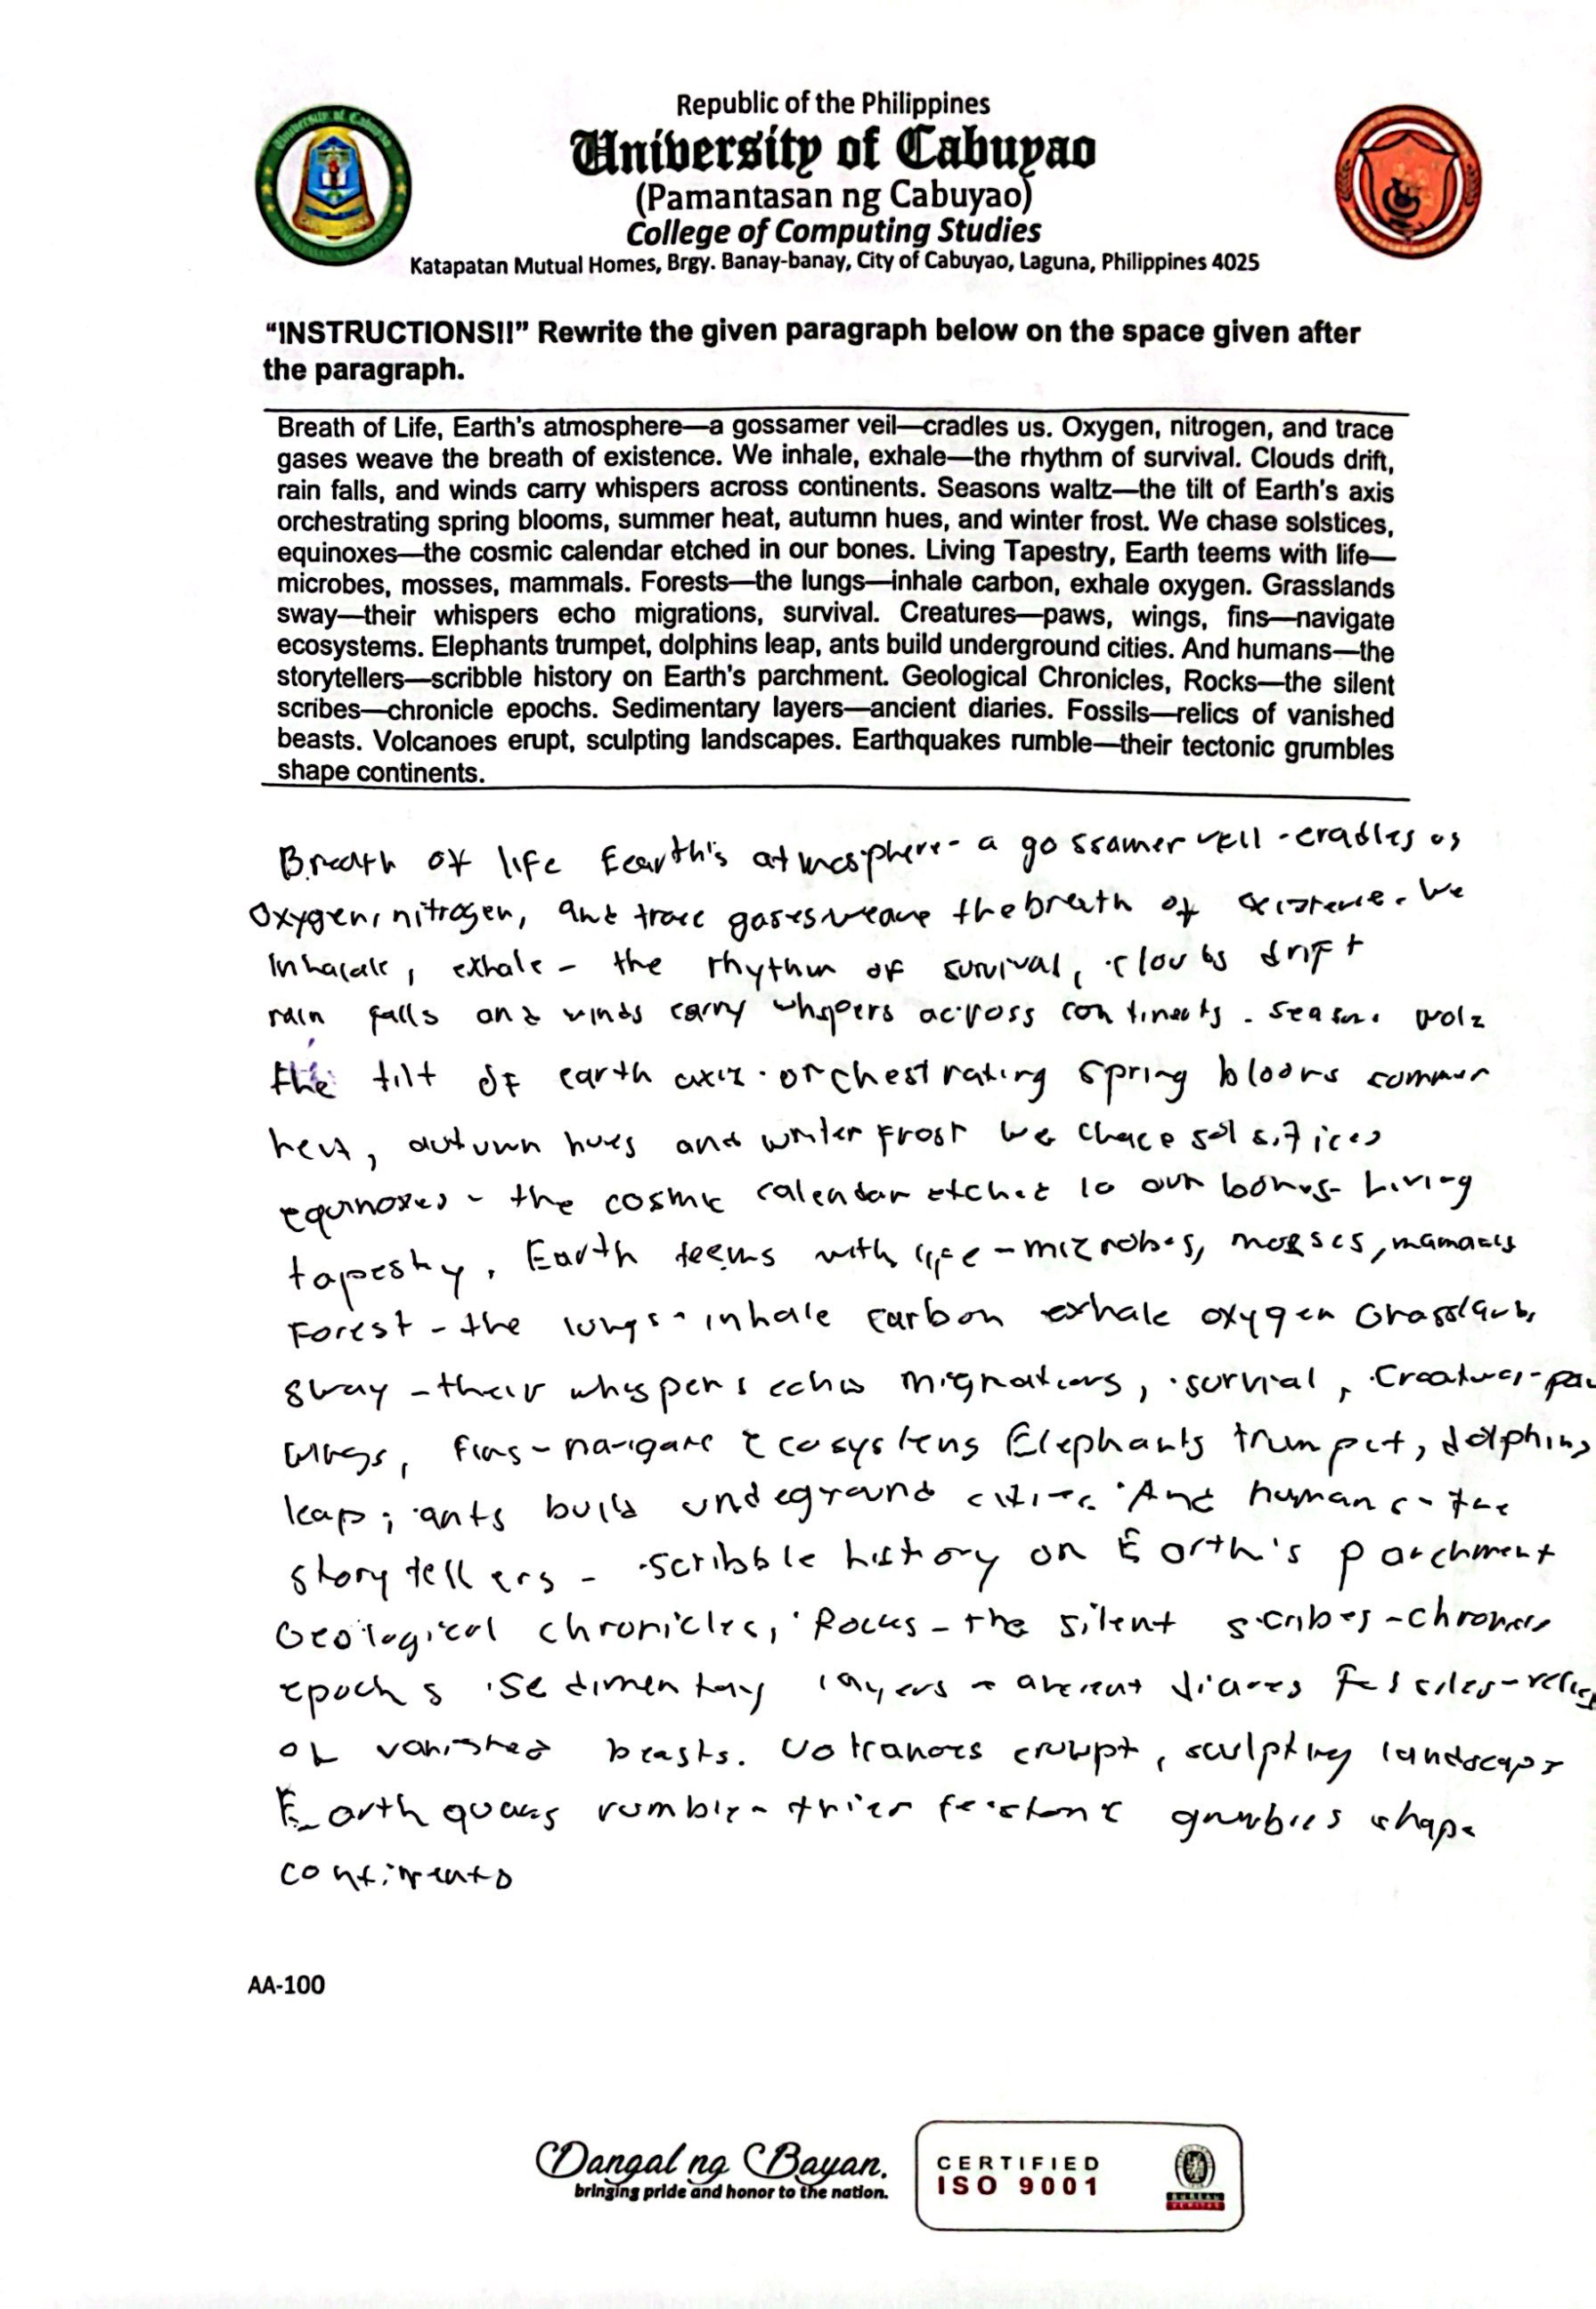 Republic of the Philippines
University of Cabuyao
(Pamantasan ng Cabuyao)
College of Computing Studies
Katapatan Mutual Homes, Brgy. Banay-banay, City of Cabuyao, Laguna, Philippines 4025
“INSTRUCTIONS!!” Rewrite the given paragraph below on the space given after
the paragraph.
Breath of Life, Earth's atmosphere—a gossamer veil—cradles us. Oxygen, nitrogen, and trace
gases weave the breath of existence. We inhale, exhale—the rhythm of survival. Clouds drift,
rain falls, and winds carry whispers across continents. Seasons waltz—the tilt of Earth's axis
orchestrating spring blooms, summer heat, autumn hues, and winter frost. We chase solstices,
equinoxes—the cosmic calendar etched in our bones. Living Tapestry, Earth teems with life—
microbes, mosses, mammals. Forests—the lungs—inhale carbon, exhale oxygen. Grasslands
sway—their whispers echo migrations, survival. Creatures—paws, wings, fins—navigate
ecosystems. Elephants trumpet, dolphins leap, ants build underground cities. And humans—the
storytellers—scribble history on Earth's parchment. Geological Chronicles, Rocks—the silent
scribes—chronicle epochs. Sedimentary layers—ancient diaries. Fossils—relics of vanished
beasts. Volcanoes erupt, sculpting landscapes. Earthquakes rumble—their tectonic grumbles
shape continents.
Breath of life Eearth's atmosphere - a gossamer vell - cradles us
Oxygen, nitrogen, and trace gases weave the breath of existence. We
exhale - the rhythm of survival, clouds drift
rain falls and winds carry whspers across continents. season
the tilt of earth axis orchestrating spring blooms summer
heat, autumn hues and winter frost we chace solstices
equinoxes - the cosmic calendar etched in our bones. Living
tapestry, Earth teems with life - microbes, mosses,
Forest - the lungs - inhale carbon exhale oxygen Grasslands
sway - their whispers echo migrations, survial, Creatures -
wings, fins - navigate ecosystems Elephants trumpet, dolphins
leap, ants build undeground cities. And humans - the
storytellers - scribble history on Earth's parchment
Geological chronicles, Rocks - the silent scribes -
epochs sedimentary layers -
of vanished beasts. erupt, sculpting landscape
rumble - shape
continents
AA-100
Dangal ng Bayan.
bringing pride and honor to the nation.
CERTIFIED
ISO 9001
BUREAU
VERITAS